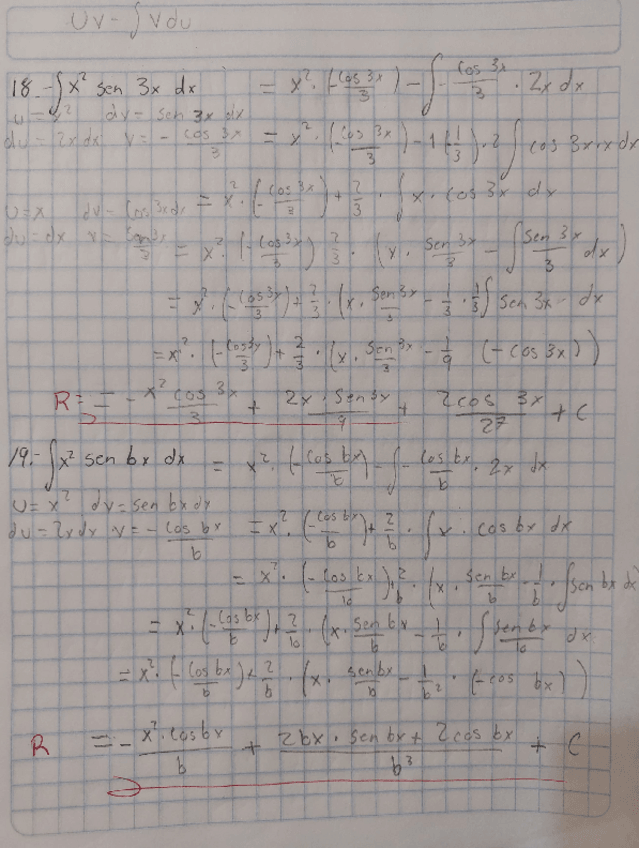 UV - ∫ V du
18.- ∫ x² sen 3x dx = x² · (-cos 3x / 3) - ∫ - cos 3x / 3 · 2x dx
u = x² dv = sen 3x dx
du = 2x dx v = - cos 3x / 3 = x² · (-cos 3x / 3) - 1 (-1/3) · 2 ∫ cos 3x · x dx
= x² · (-cos 3x / 3) + 2/3 · ∫ x · cos 3x dx
U = x dv = cos 3x dx
du = dx v = sen 3x / 3 = x² · (-cos 3x / 3) 2/3 · (x · sen 3x / 3 - ∫ sen 3x / 3 dx)
= x² · (-cos 3x / 3) + 2/3 · (x · sen 3x / 3 - 1/3 · 1/3 ∫ sen 3x dx
= x² · (-cos 3x / 3) + 2/3 · (x · sen 3x / 3 - 1/9 (-cos 3x))
R = = - x² cos 3x / 3 + 2x · sen 3x / 9 + 2 cos 3x / 27 + C
19.- ∫ x² sen bx dx = x² · (-cos bx / b) - ∫ - cos bx / b · 2x dx
U = x² dv = sen bx dx
du = 2x dx v = - cos bx / b = x² · (-cos bx / b) + 2/b · ∫ x · cos bx dx
= x² · (-cos bx / b) + 2/b · (x · sen bx / b - 1/b · ∫ sen bx dx
= x² · (-cos bx / b) + 2/b · (x · sen bx / b - 1/b · ∫ sen bx / b dx
= x² · (-cos bx / b) + 2/b · (x · sen bx / b - 1/b² · (-cos bx))
R = - x² · cos bx / b + 2bx · sen bx + 2 cos bx / b³ + C